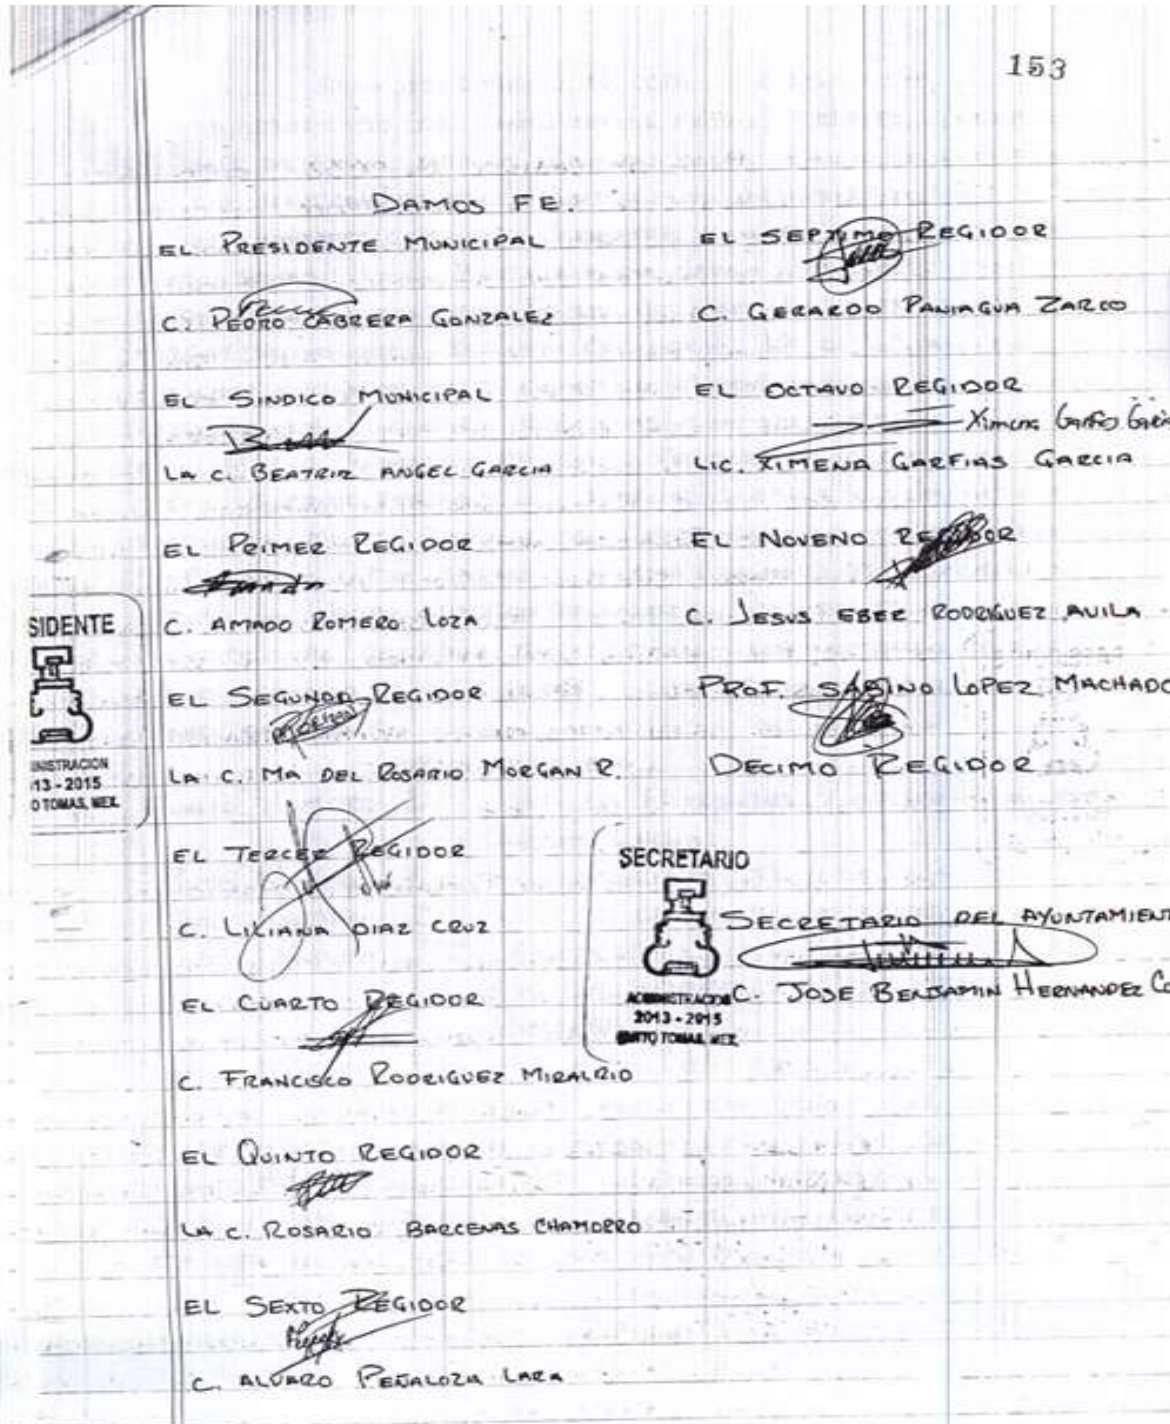 153
DAMOS FE.
EL PRESIDENTE MUNICIPAL
C. PEDRO CABRERA GONZALEZ
EL SINDICO MUNICIPAL
LA C. BEATRIZ ANGEL GARCIA
EL PRIMER REGIDOR
C. AMADO ROMERO LOZA
EL SEGUNDO REGIDOR
LA C. MA DEL ROSARIO MORGAN R.
EL TERCER REGIDOR
C. LILIANA DIAZ CRUZ
EL CUARTO REGIDOR
C. FRANCISCO RODRIGUEZ MIRALRIO
EL QUINTO REGIDOR
LA C. ROSARIO BARCENAS CHAMORRO
EL SEXTO REGIDOR
C. ALVARO PEÑALOZA LARA
EL SEPTIMO REGIDOR
C. GERARDO PANIAGUA ZARCO
EL OCTAVO REGIDOR
Ximena
LIC. XIMENA GARFIAS GARCIA
EL NOVENO REGIDOR
C. JESUS EBER RODRIGUEZ AVILA
PROF. SABINO LOPEZ MACHADO
DECIMO REGIDOR
SECRETARIO DEL AYUNTAMIENT
C. JOSE BENJAMIN HERNANDEZ CO
SIDENTE
13 - 2015
O TOMAS, MEX.
SECRETARIO
ADMINISTRACION
2013 - 2015
TOMAS, MEX.